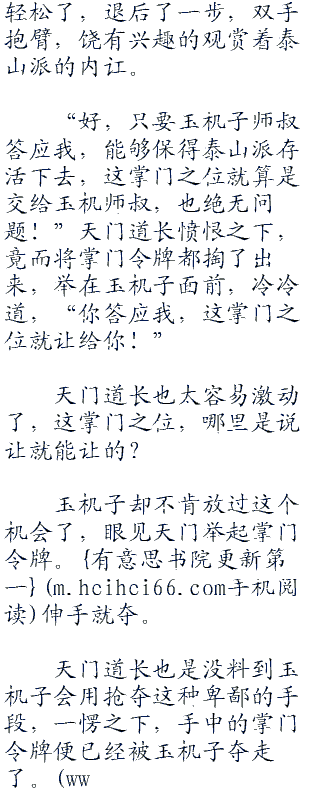 轻松了，退后了一步，双手
抱臂，饶有兴趣的观赏着泰
山派的内讧。
“好，只要玉机子师叔
答应我，能够保得泰山派存
活下去，这掌门之位就算是
交给玉机师叔，也绝无问
题！”天门道长愤恨之下，
竟而将掌门令牌都掏了出
来，举在玉机子面前，冷冷
道，“你答应我，这掌门之
位就让给你！”
天门道长也太容易激动
了，这掌门之位，哪里是说
让就能让的？
玉机子却不肯放过这个
机会了，眼见天门举起掌门
令牌。{有意思书院更新第
一}(m.hcihci66.com手机阅
读)伸手就夺。
天门道长也是没料到玉
机子会用抢夺这种卑鄙的手
段，一愣之下，手中的掌门
令牌便已经被玉机子夺走
了。(ww